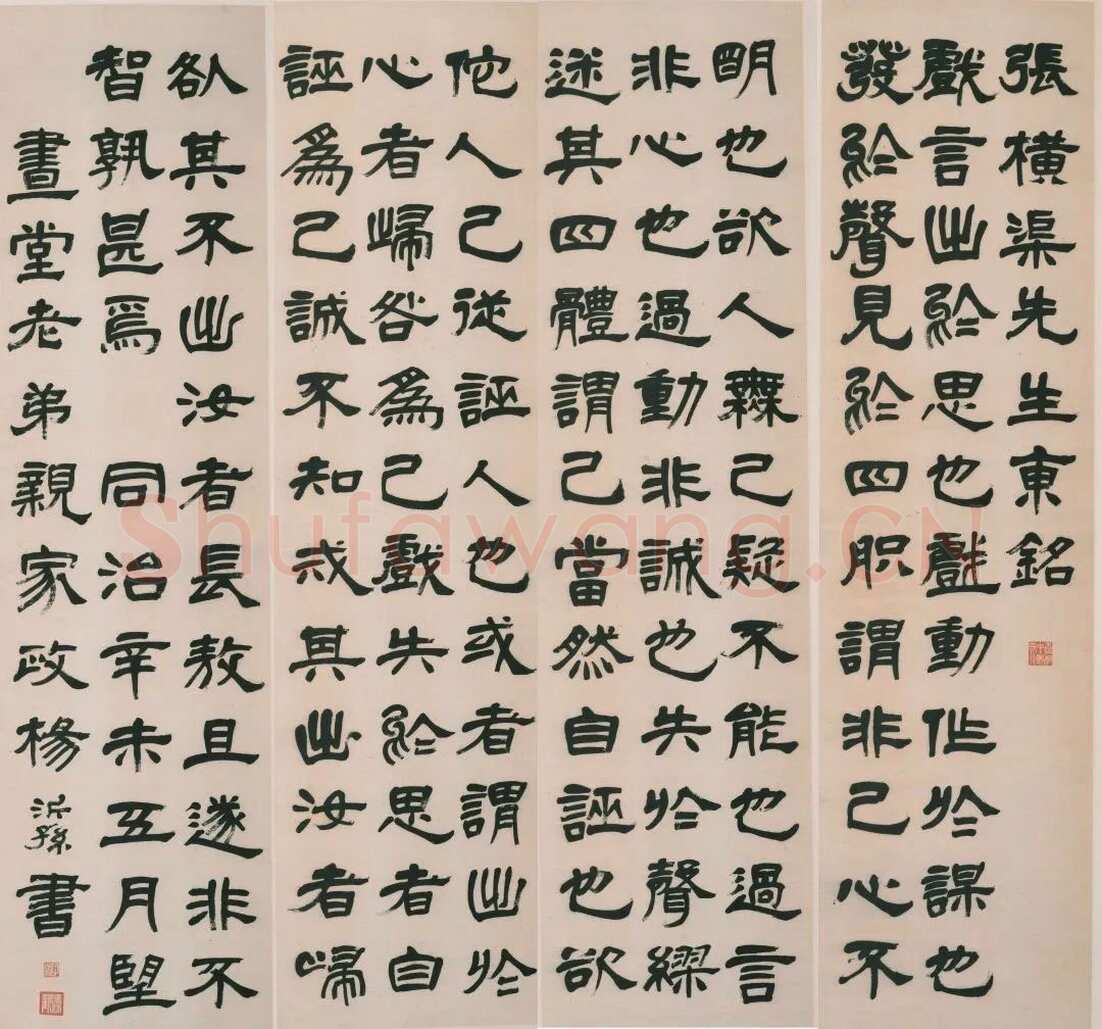 張橫渠先生東銘
戲言出於思也戲動作於謀也
發於聲見於四胑謂非己心不
明也欲人無己疑不能也過言
非心也過動非誠也失於聲繆
迷其四體謂己當然自誣也欲
佗人己從誣人也或者謂出於
心者歸咎為己戲失於思者自
誣為己誠不知戒其出汝者歸
咎其不出汝者長敖且遂非不
智孰甚焉 同治辛未五月望
晝堂老弟親家政楊沂孫書
Shufawang.CN